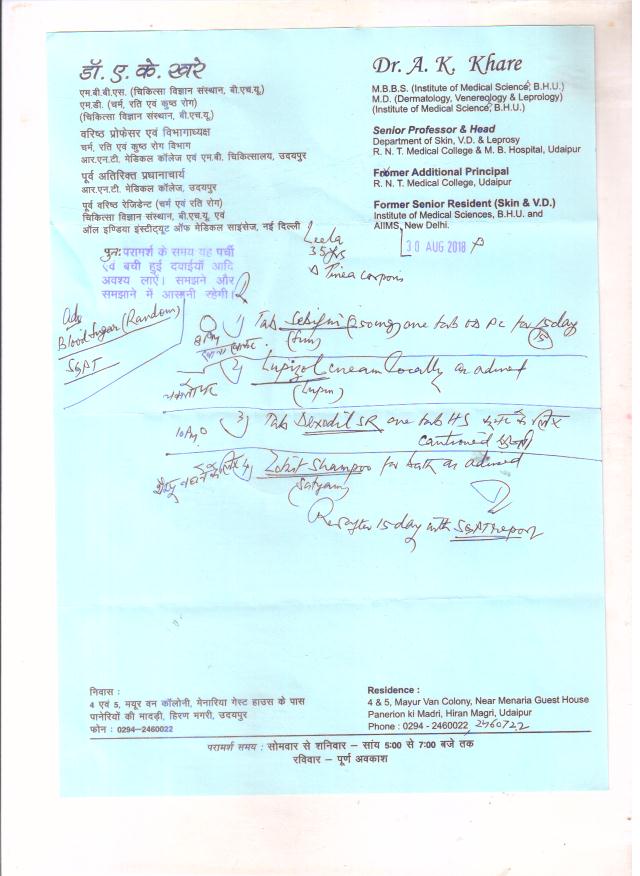 डॉ. ए. के. खरे
एम.बी.बी.एस. (चिकित्सा विज्ञान संस्थान, बी.एच.यू.)
एम.डी. (चर्म, रति एवं कुष्ठ रोग)
(चिकित्सा विज्ञान संस्थान, बी.एच.यू.)
वरिष्ठ प्रोफेसर एवं विभागाध्यक्ष
चर्म, रति एवं कुष्ठ रोग विभाग
आर.एन.टी. मेडिकल कॉलेज एवं एम.बी. चिकित्सालय, उदयपुर
पूर्व अतिरिक्त प्रधानाचार्य
आर.एन.टी. मेडिकल कॉलेज, उदयपुर
पूर्व वरिष्ठ रेजिडेन्ट (चर्म एवं रति रोग)
चिकित्सा विज्ञान संस्थान, बी.एच.यू. एवं
ऑल इण्डिया इंस्टीट्यूट ऑफ मेडिकल साइंसेज, नई दिल्ली
Dr. A. K. Khare
M.B.B.S. (Institute of Medical Science, B.H.U.)
M.D. (Dermatology, Venereology & Leprology)
(Institute of Medical Science, B.H.U.)
Senior Professor & Head
Department of Skin, V.D. & Leprosy
R. N. T. Medical College & M. B. Hospital, Udaipur
Former Additional Principal
R. N. T. Medical College, Udaipur
Former Senior Resident (Skin & V.D.)
Institute of Medical Sciences, B.H.U. and
AIIMS, New Delhi.
पुनः परामर्श के समय यह पर्ची
एवं बची हुई दवाईयाँ आदि
अवश्य लाऐं। समझने और
समझाने में आसानी रहेगी।
Leela
35 yrs
Tinea corporis
30 AUG 2018
Adv
Blood Sugar (Random)
SGPT
1) Tab Sebifin (250mg) one tab OD PC for 15 day
(Sun)
2) Lupizol cream locally as advised
(Lupin)
3) Tab Dexodil SR one tab HS
cautioned
4) Zobit Shampoo for bath as advised
(Satyam)
Rev after 15 day with SGPT report
निवास :
4 एवं 5, मयूर वन कॉलोनी, मेनारिया गेस्ट हाउस के पास
पानेरियों की मादड़ी, हिरण मगरी, उदयपुर
फोन : 0294-2460022
Residence :
4 & 5, Mayur Van Colony, Near Menaria Guest House
Panerion ki Madri, Hiran Magri, Udaipur
Phone : 0294 - 2460022, 2460722
परामर्श समय : सोमवार से शनिवार – सांय 5:00 से 7:00 बजे तक
रविवार – पूर्ण अवकाश